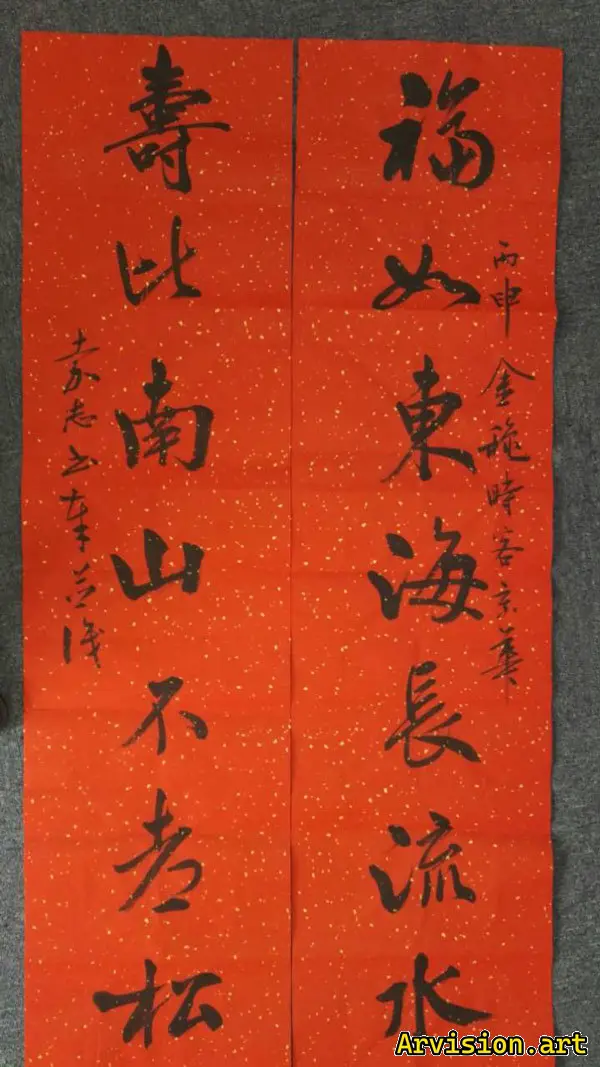 福如東海長流水
丙申金秋時客京華
壽比南山不老松
袁志
Arvision.art